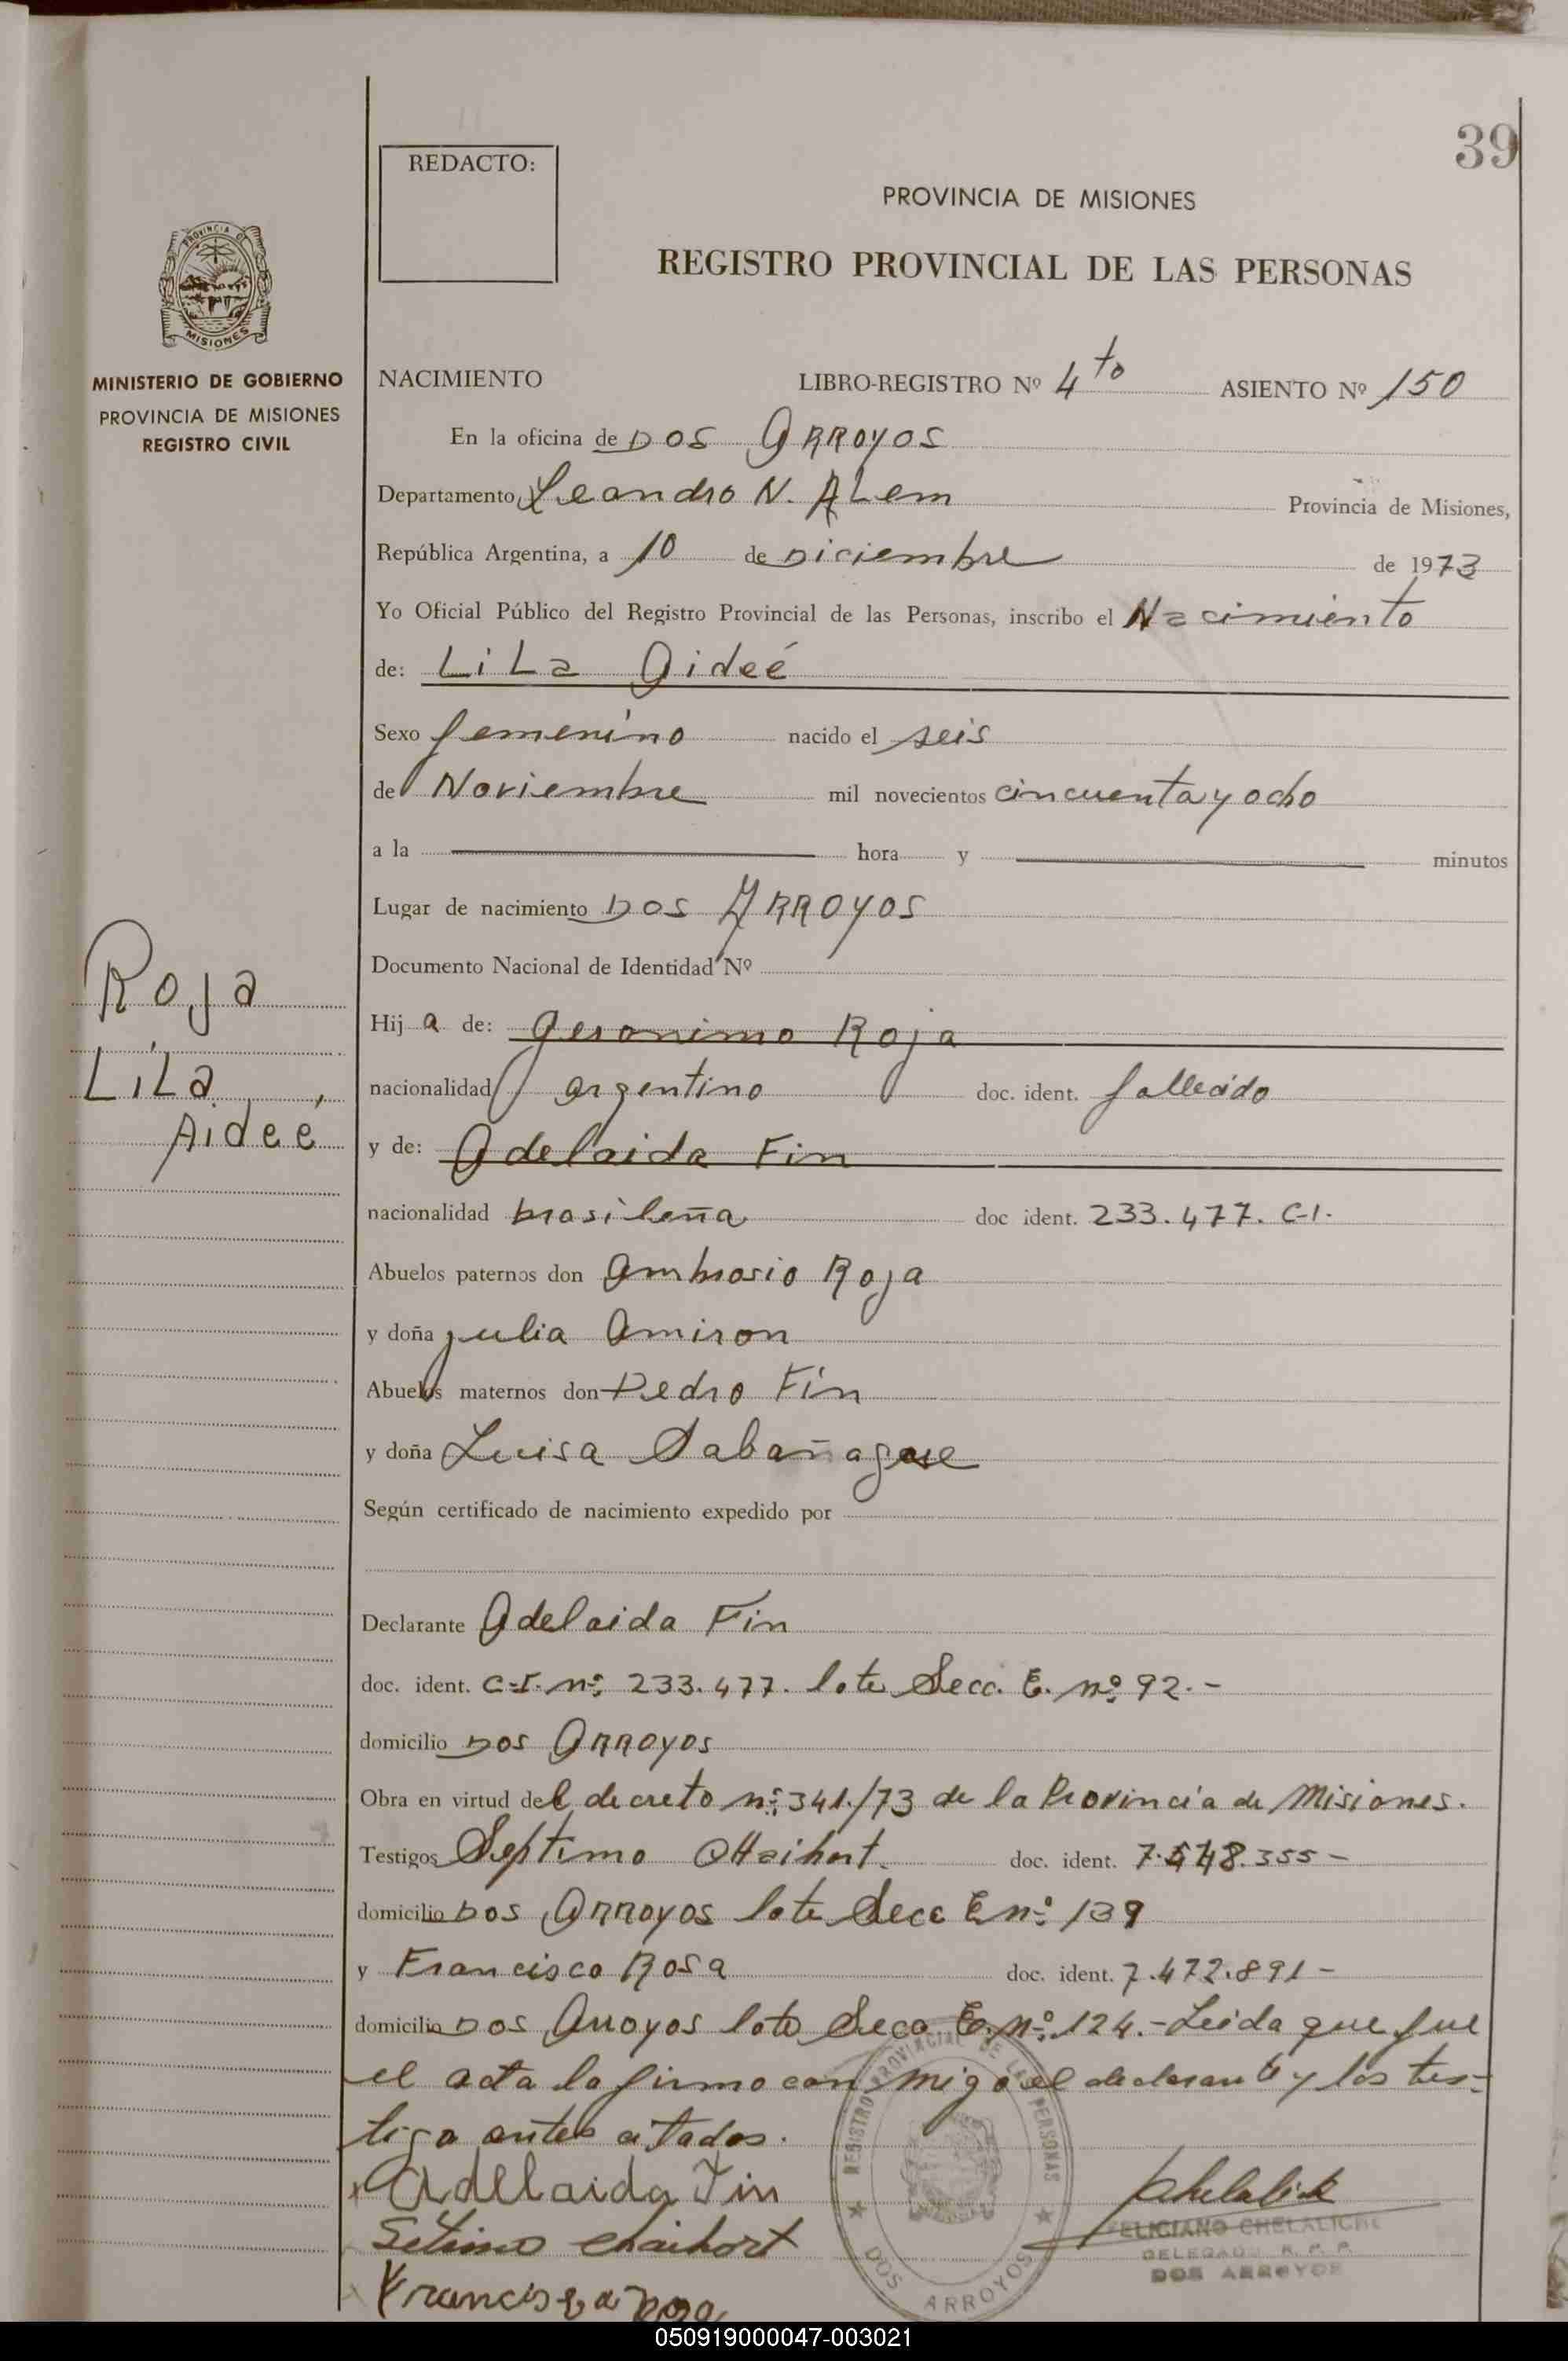 39
REDACTO:
PROVINCIA DE MISIONES
REGISTRO PROVINCIAL DE LAS PERSONAS
PROVINCIA DE
MISIONES
MINISTERIO DE GOBIERNO
PROVINCIA DE MISIONES
REGISTRO CIVIL
NACIMIENTO LIBRO-REGISTRO Nº 4to ASIENTO Nº 150
En la oficina de DOS ARROYOS
Departamento Leandro N. ALem Provincia de Misiones,
República Argentina, a 10 de Diciembre de 1973
Yo Oficial Público del Registro Provincial de las Personas, inscribo el Nacimiento
de: LiLa Aideé
Sexo femenino nacido el seis
de Noviembre mil novecientos cincuenta y ocho
a la hora y minutos
Lugar de nacimiento DOS ARROYOS
Documento Nacional de Identidad Nº
Roja
LiLa,
Aideé
Hija de: Geronimo Roja
nacionalidad argentino doc. ident. fallecido
y de: Adelaida Fin
nacionalidad brasileña doc ident. 233.477. C-I.
Abuelos paternos don Ambrosio Roja
y doña julia Amiron
Abuelos maternos don Pedro Fin
y doña Luisa
Según certificado de nacimiento expedido por
Declarante Adelaida Fin
doc. ident. C-I. nº 233.477. lote Secc. E. nº 92.-
domicilio DOS Arroyos
Obra en virtud del decreto nº 341./73 de la Provincia de Misiones.
Testigos Septimo doc. ident. 355-
domicilio DOS Arroyos lote Secc E nº 139
y Francisco Rosa doc. ident. 7.472.891-
domicilio DOS Arroyos lote Secc E. nº 124.- Leida que fue
el acta la firmo con migo el declarante y los tes-
tigo antes citados.
Adellaida Fin
chaihort
FELICIANO CHELALICHE
DELEGADO R. P. P.
DOS ARROYOS
REGISTRO PROVINCIAL DE LAS PERSONAS
DOS ARROYOS
050919000047-003021